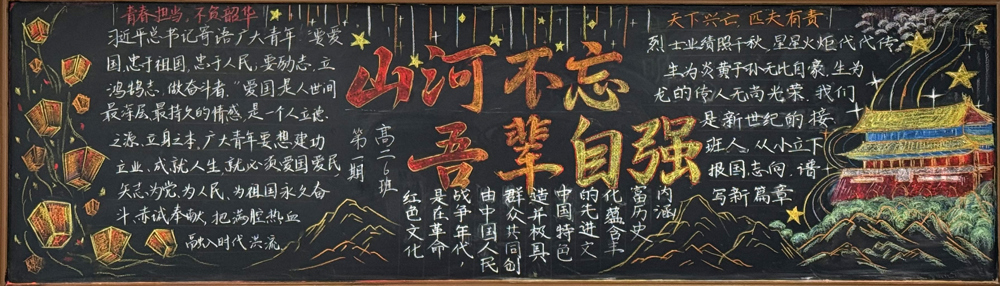 青春担当,不负韶华
习近平总书记寄语广大青年 要爱
国,忠于祖国,忠于人民,要励志,立
鸿鹄志,做奋斗者,"爱国是人世间
最深层,最持久的情感,是一个人立德
之源,立身之本,广大青年要想建功
立业,成就人生,就必须爱国爱民
矢志为党,为人民,为祖国永久奋
斗,赤诚奉献,把满腔热血
融入时代洪流.
山河不忘
吾辈自强
高二6班
第二期
红色文化
是在革命
战争年代,
由中国人民
群众共同创
造并极具
中国特色
的先进文
化,蕴含丰
富历史
内涵
天下兴亡 匹夫有责
烈士业绩照千秋,星星火炬代代传.
生为炎黄子孙无比自豪,生为
龙的传人无尚光荣.我们
是新世纪的接
班人,从小立下
报国志向,谱
写新篇章